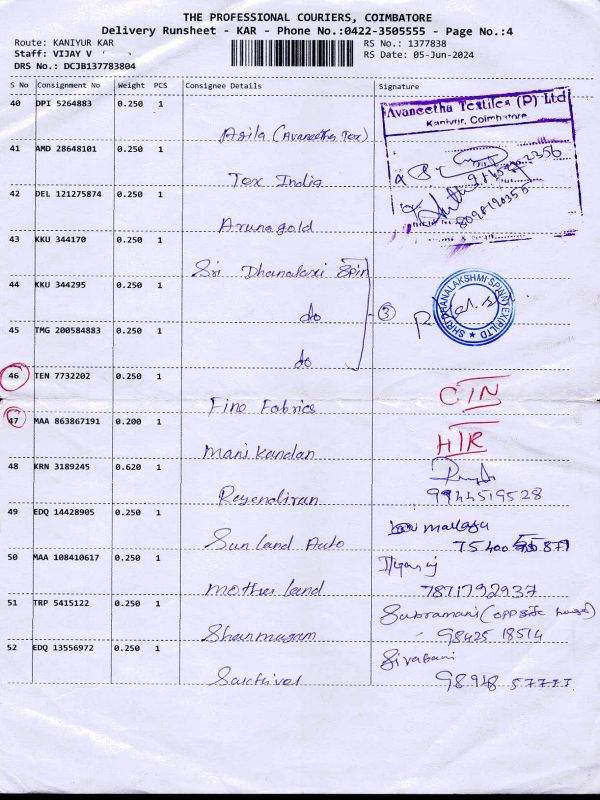 THE PROFESSIONAL COURIERS, COIMBATORE
Delivery Runsheet - KAR - Phone No.:0422-3505555 - Page No.:4
Route: KANIYUR KAR
RS No.: 1377838
Staff: VIJAY V
RS Date: 05-Jun-2024
DRS No.: DCJB137783804
S No Consignment No Weight PCS Consignee Details Signature
40 DPI 5264883 0.250 1
Agila (Avaneetha Tex)
Avaneetha Textiles (P) Ltd
Kaniyur, Coimbatore
41 AMD 28648101 0.250 1
Tex India
42 DEL 121275874 0.250 1
Arunagold
8098190355
43 KKU 344170 0.250 1
Sri Dhanalaxi Spin
44 KKU 344295 0.250 1
do
3
SHRI DHANALAKSHMI SPINNTEX(P)LTD
45 TMG 200584883 0.250 1
do
46 TEN 7732202 0.250 1
Fine Fabrics
CIN
47 MAA 863867191 0.200 1
Manikandan
HTR
48 KRN 3189245 0.620 1
Rajendiran
9944519528
49 EDQ 14428905 0.250 1
Sunland Auto
50 MAA 108410617 0.250 1
Mother land
7871792937
51 TRP 5415122 0.250 1
Shanmugam
Subramani (opposite house)
98425 18514
52 EDQ 13556972 0.250 1
Sakthivel
Sivabani